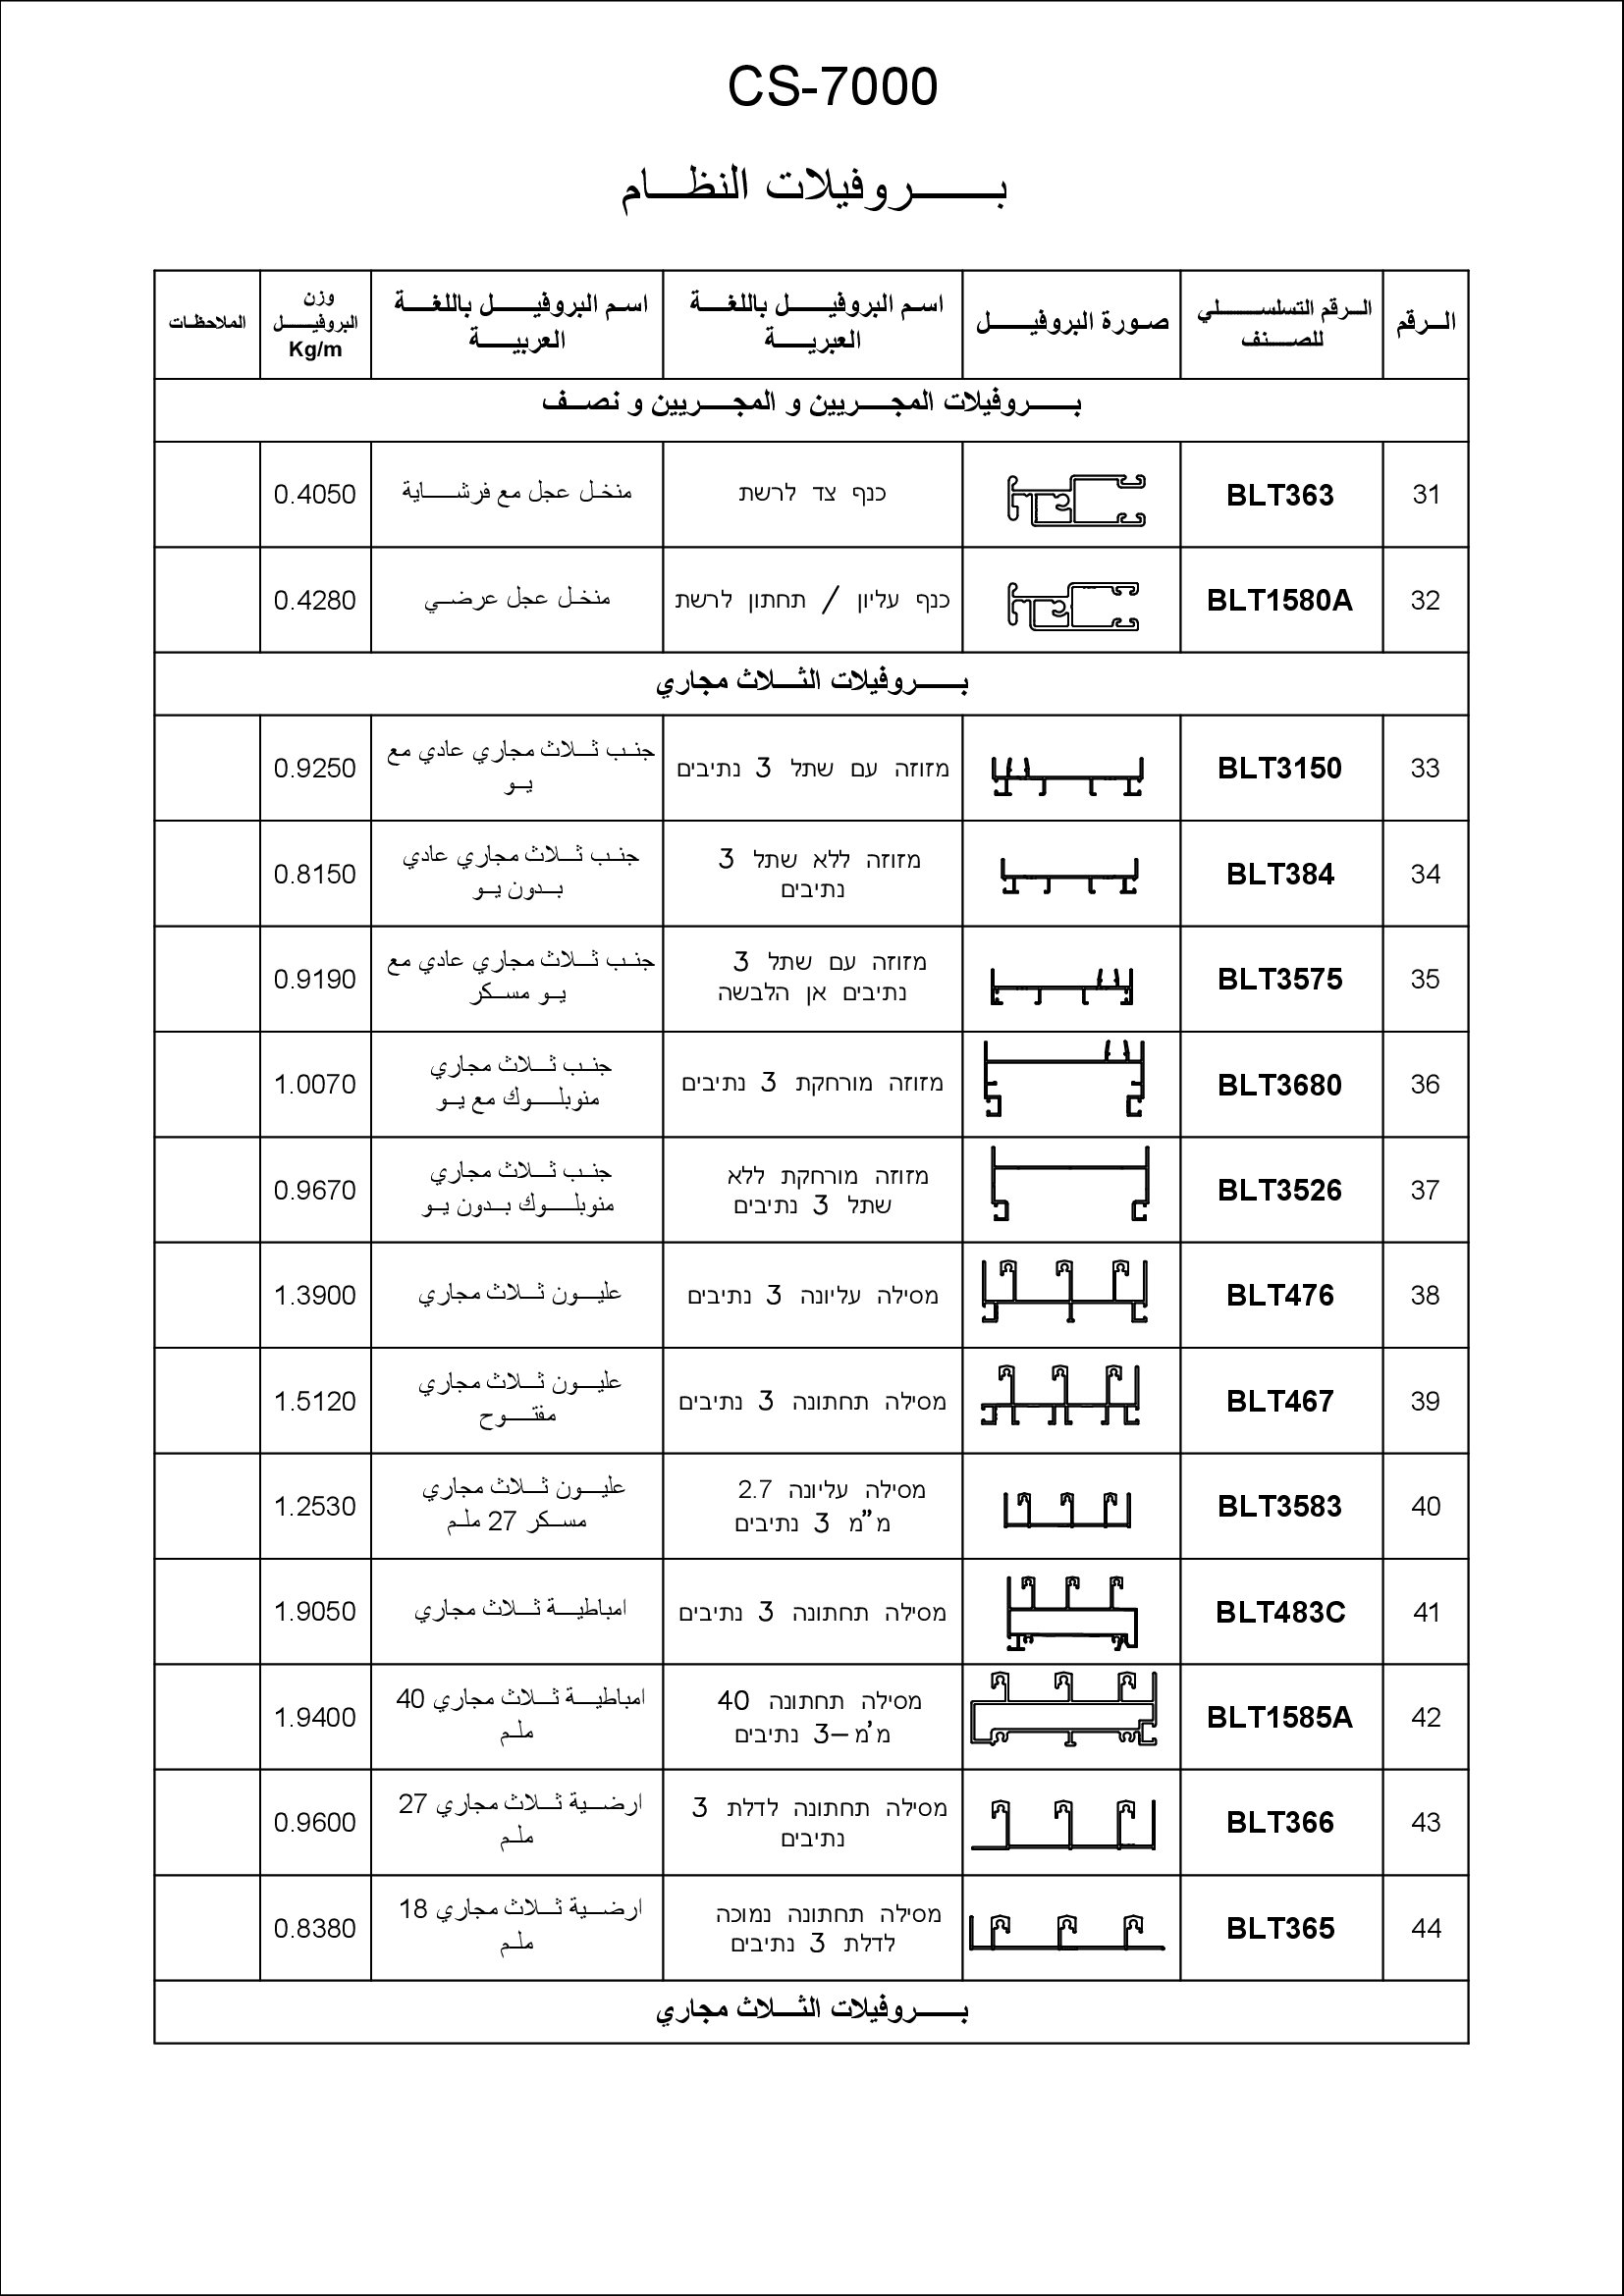 CS-7000
بـــــروفيلات النظـــام
الــرقم
الــرقم التسلســـــلي
للصـــنف
صـورة البروفيـــــل
اسـم البروفيـــــل باللغـــة
العبريـــة
اسـم البروفيـــــل باللغـــة
العربيـــة
وزن
البروفيـــــل
Kg/m
الملاحظـات
بـــــروفيلات المجـــريين و المجـــريين و نصــف
31
BLT363
כנף צד לרשת
منخـل عجل مع فرشـــاية
0.4050
32
BLT1580A
כנף עליון / תחתון לרשת
منخـل عجل عرضـي
0.4280
بـــــروفيلات الثـــلاث مجاري
33
BLT3150
מזוזה עם שתל 3 נתיבים
جنـب ثـــلاث مجاري عادي مع
يــو
0.9250
34
BLT384
מזוזה ללא שתל 3
נתיבים
جنـب ثـــلاث مجاري عادي
بــدون يــو
0.8150
35
BLT3575
מזוזה עם שתל 3
נתיבים אן הלבשה
جنـب ثـــلاث مجاري عادي مع
يــو مسـكر
0.9190
36
BLT3680
מזוזה מורחקת 3 נתיבים
جنـب ثـــلاث مجاري
منوبلـــوك مع يــو
1.0070
37
BLT3526
מזוזה מורחקת ללא
שתל 3 נתיבים
جنـب ثـــلاث مجاري
منوبلـــوك بــدون يــو
0.9670
38
BLT476
מסילה עליונה 3 נתיבים
عليـــون ثـــلاث مجاري
1.3900
39
BLT467
מסילה תחתונה 3 נתיבים
عليـــون ثـــلاث مجاري
مفتـــوح
1.5120
40
BLT3583
מסילה עליונה 2.7
מ”מ 3 נתיבים
عليـــون ثـــلاث مجاري
مسـكر 27 ملـم
1.2530
41
BLT483C
מסילה תחתונה 3 נתיבים
امباطيـــة ثـــلاث مجاري
1.9050
42
BLT1585A
מסילה תחתונה 40
מ’מ-3 נתיבים
امباطيـــة ثـــلاث مجاري 40
ملـم
1.9400
43
BLT366
מסילה תחתונה לדלת 3
נתיבים
ارضـــية ثـــلاث مجاري 27
ملـم
0.9600
44
BLT365
מסילה תחתונה נמוכה
לדלת 3 נתיבים
ارضـــية ثـــلاث مجاري 18
ملـم
0.8380
بـــــروفيلات الثـــلاث مجاري